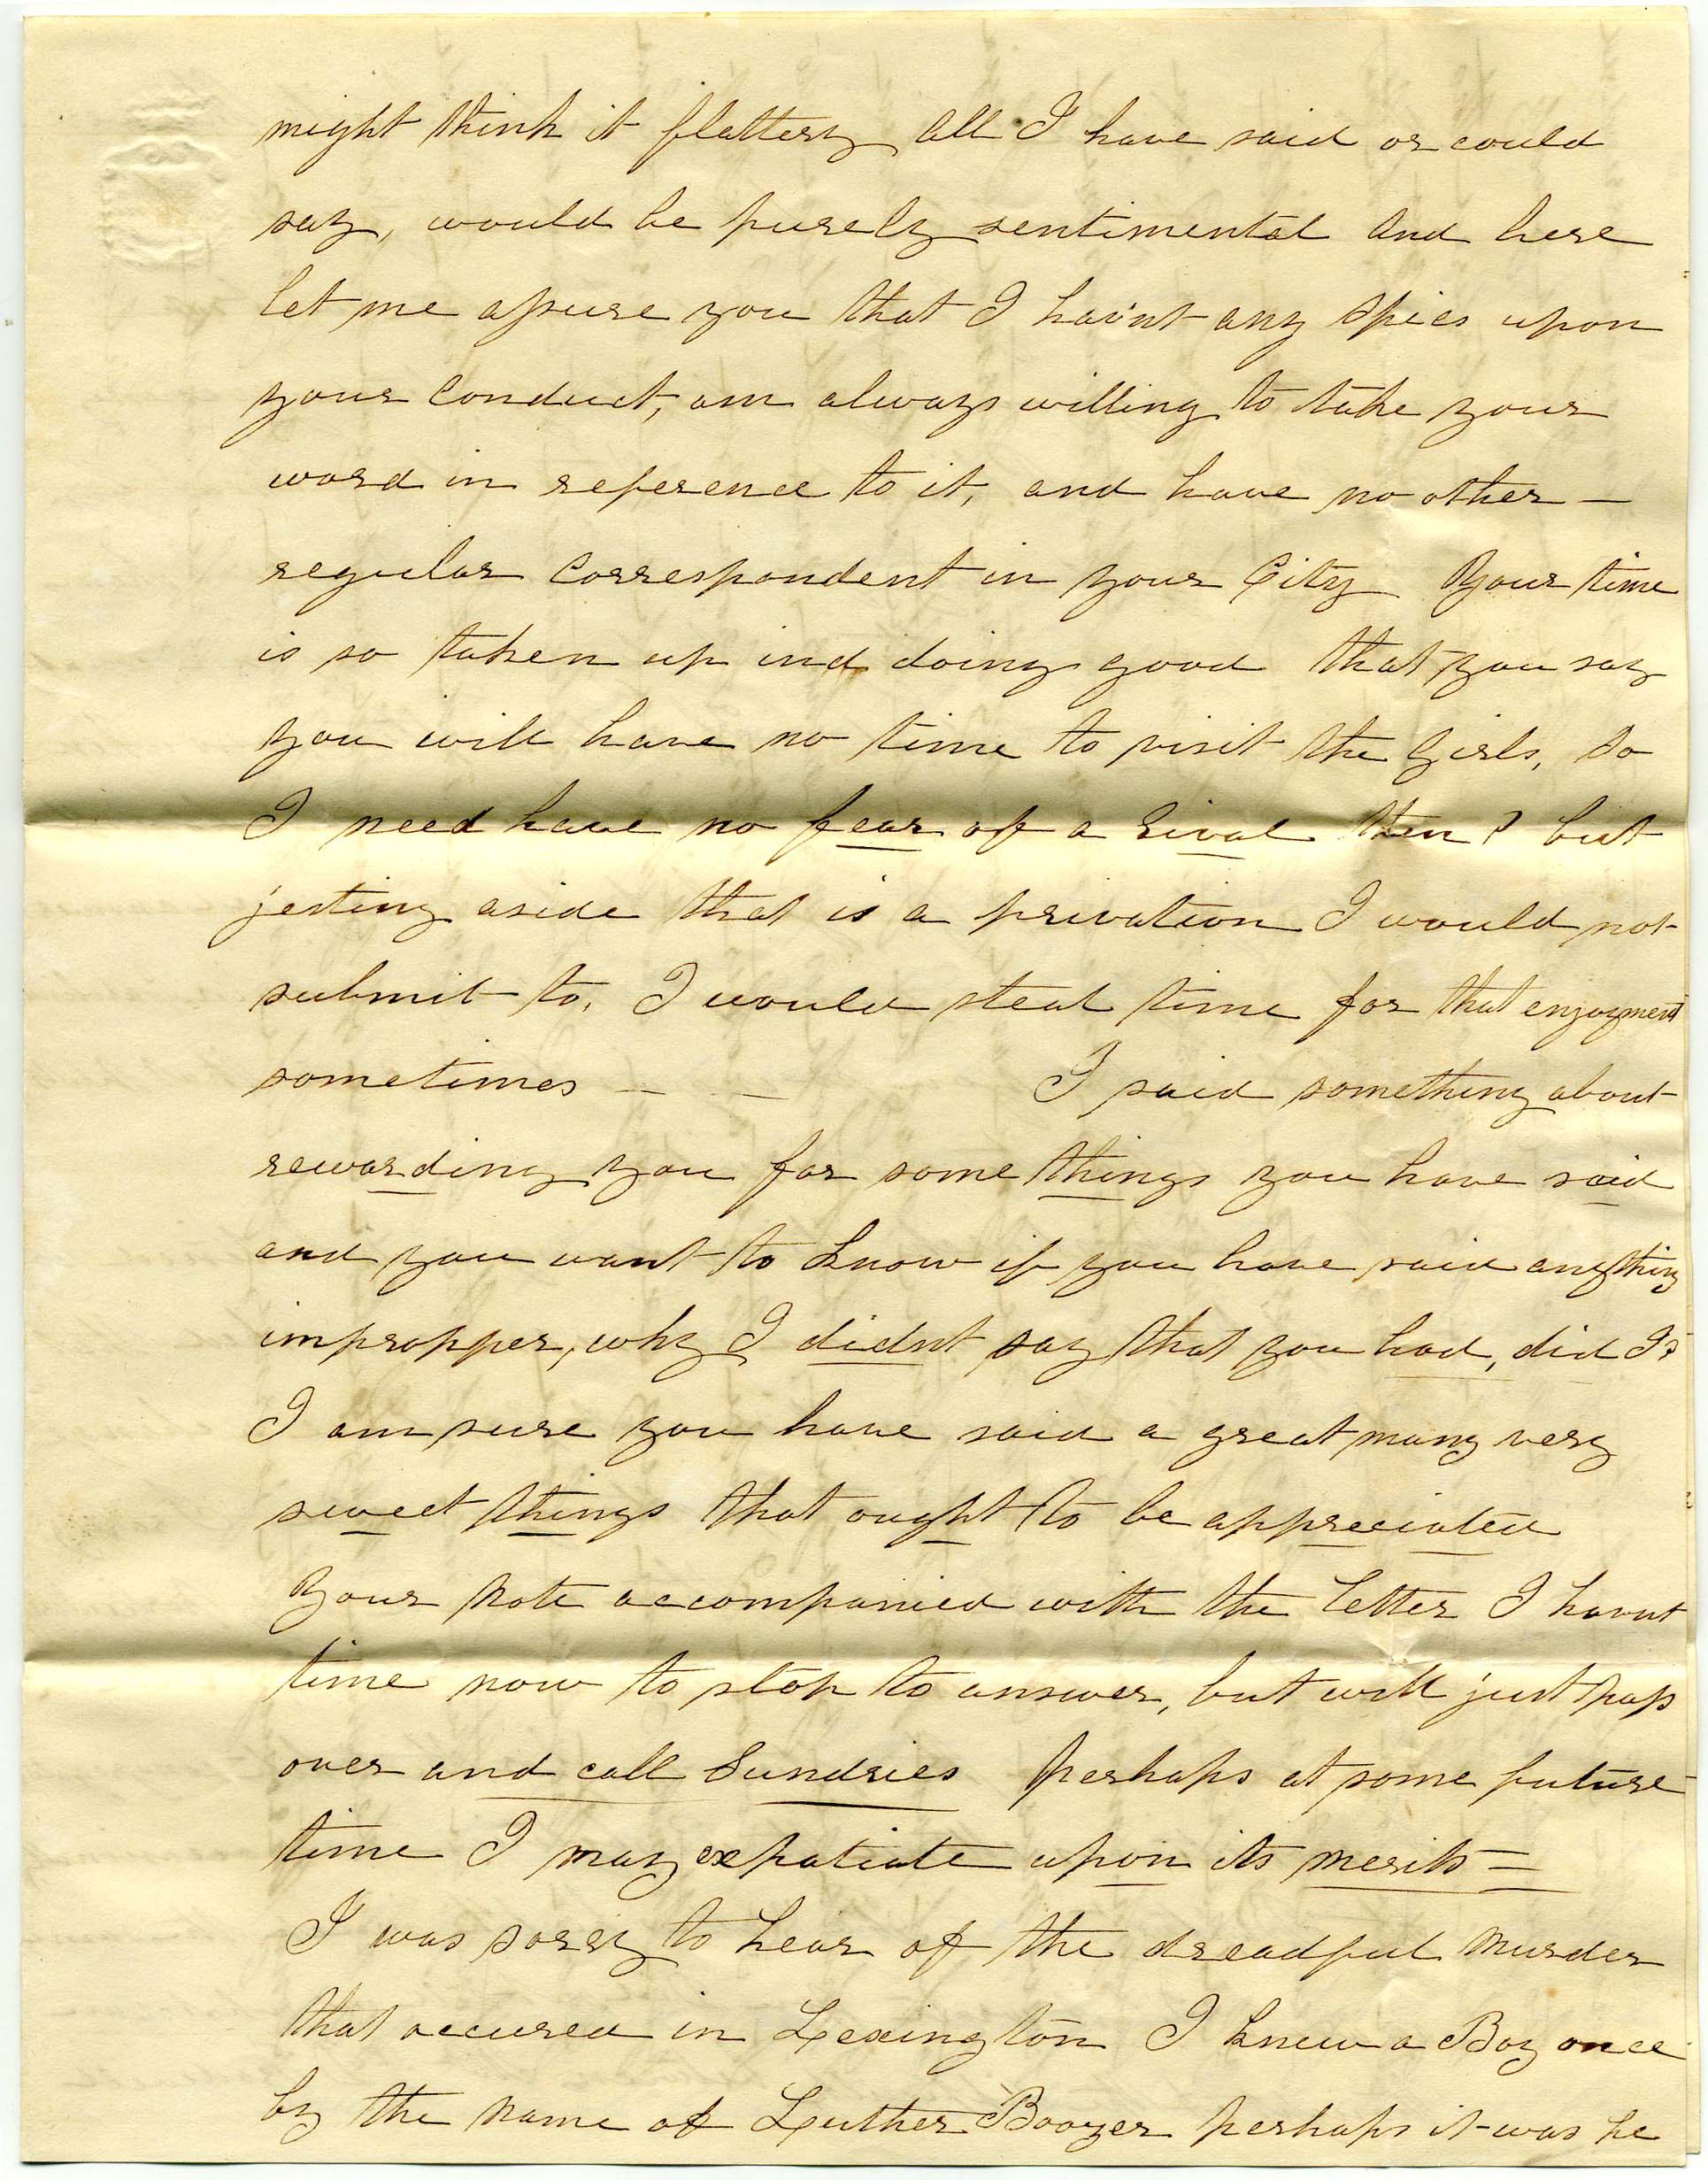 might think it flattery, all I have said or could
say, would be purely sentimental and here
let me assure you that I hav'nt any spies upon
your conduct, am always willing to take your
word in reference to it, and have no other —
regular correspondent in your City Your time
is so taken up in doing good that you say
you will have no time to visit the Girls, So
I need have no fear of a rival then? but
jesting aside that is a privation I would not
submit to, I would steal time for that enjoyment
sometimes — — I said something about
rewarding you for some things you have said
and you want to know if you have said anything
impropper, why I didnt say that you had, did I?
I am sure you have said a great many very
sweet things that ought to be appreciated
Your note accompanied with the letter I havnt
time now to stop to answer, but will just pass
over and call Sundries perhaps at some future
time I may expatiate upon its merits =
I was sorry to hear of the dreadful murder
that occured in Lexington I knew a Boy once
by the name of Luther Boozer perhaps it was he